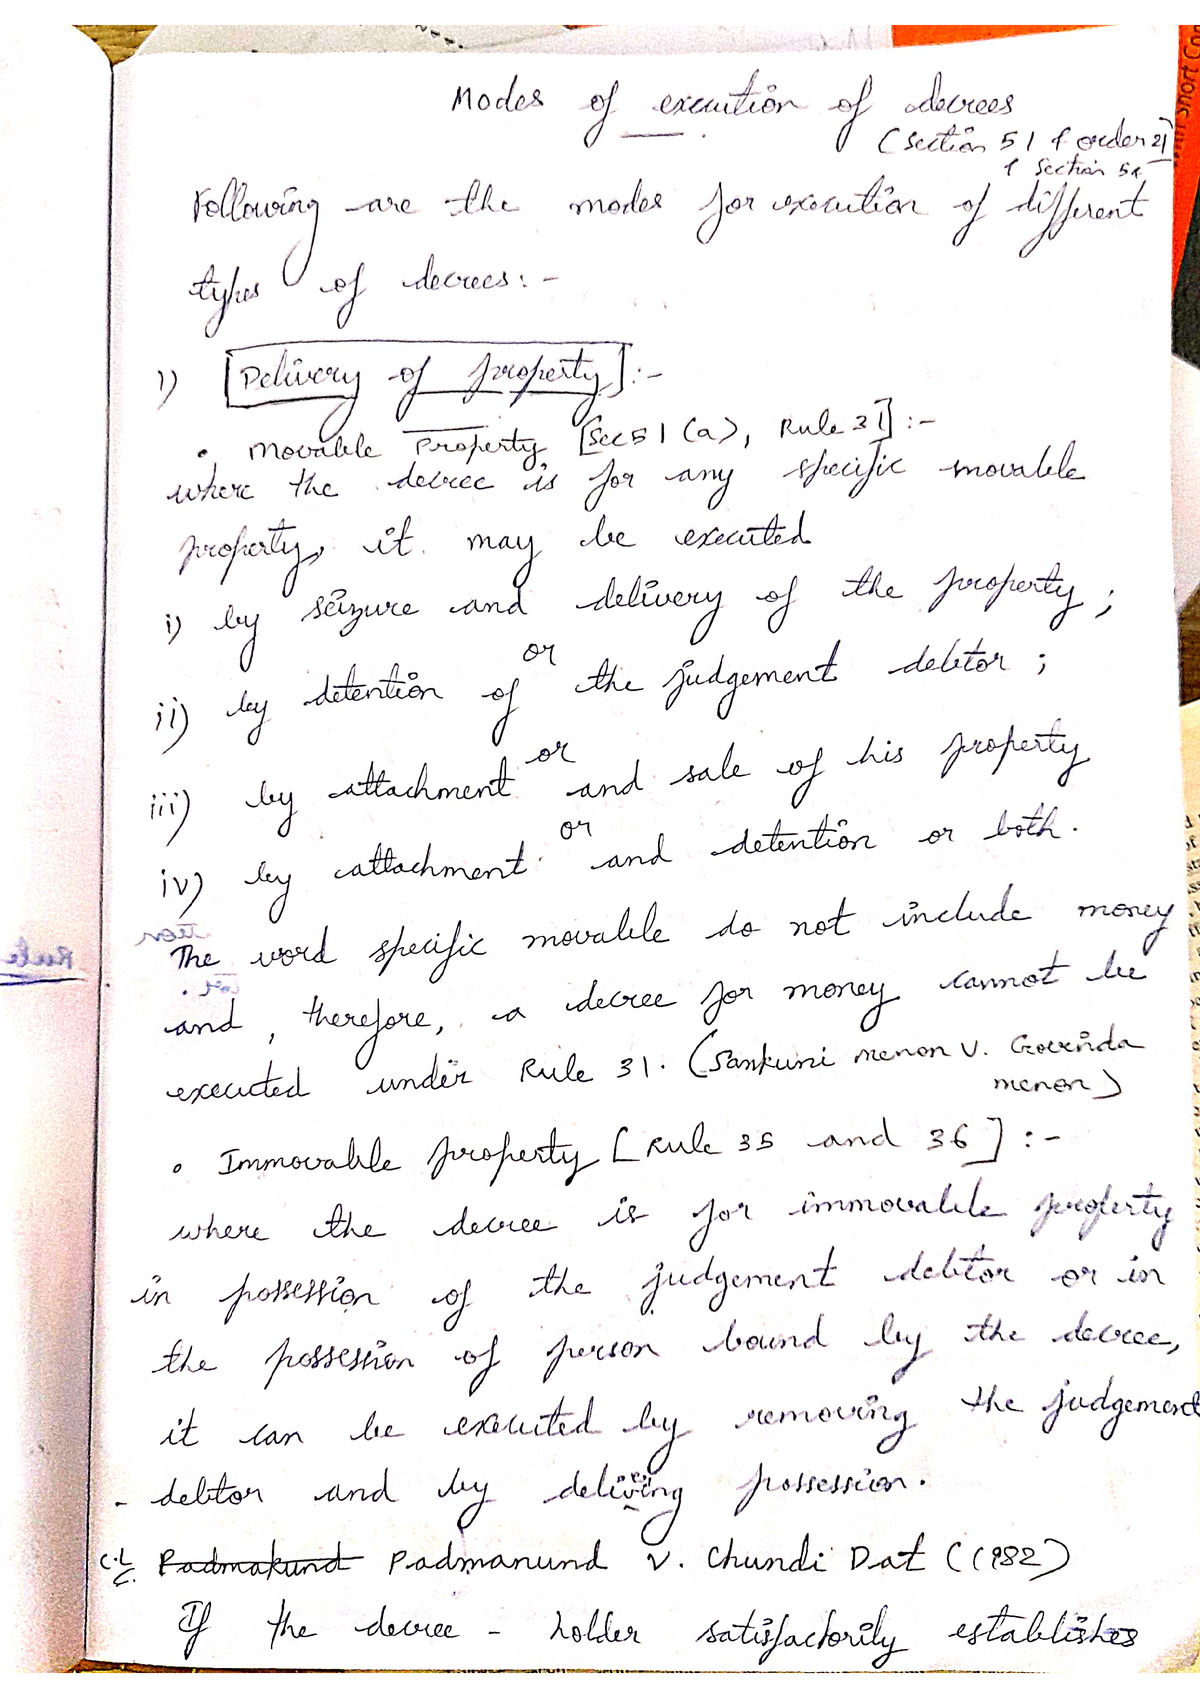 Modes of execution of decrees
(Section 51 & order 21]
& Section 54
Following are the modes for execution of different
types of decrees:-
1) [Delivery of property]:-
• Movable Property [Sec 51 (a), Rule 31] :-
where the decree is for any specific movable
property, it may be executed
i) by seizure and delivery of the property ;
or
ii) by detention of the judgement debtor ;
or
iii) by attachment and sale of his property
or
iv) by attachment and detention or both.
The word specific movable do not include money
and, therefore, a decree for money cannot be
executed under Rule 31. (Sankuni menon v. Govinda
menon)
• Immovable property [Rule 35 and 36] :-
where the decree is for immovable property
in possession of the judgement debtor or in
the possession of person bound by the decree,
it can be executed by removing the judgement
- debtor and by delivering possession.
Padmakund Padmanund v. Chundi Dat (1982)
If the decree - holder satisfactorily establishes
Rule